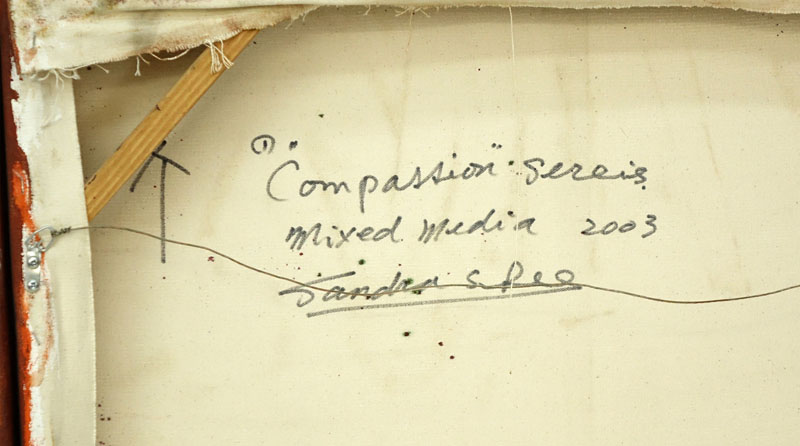 ① "Compassion" Sereis
Mixed Media 2003
Sandra S.